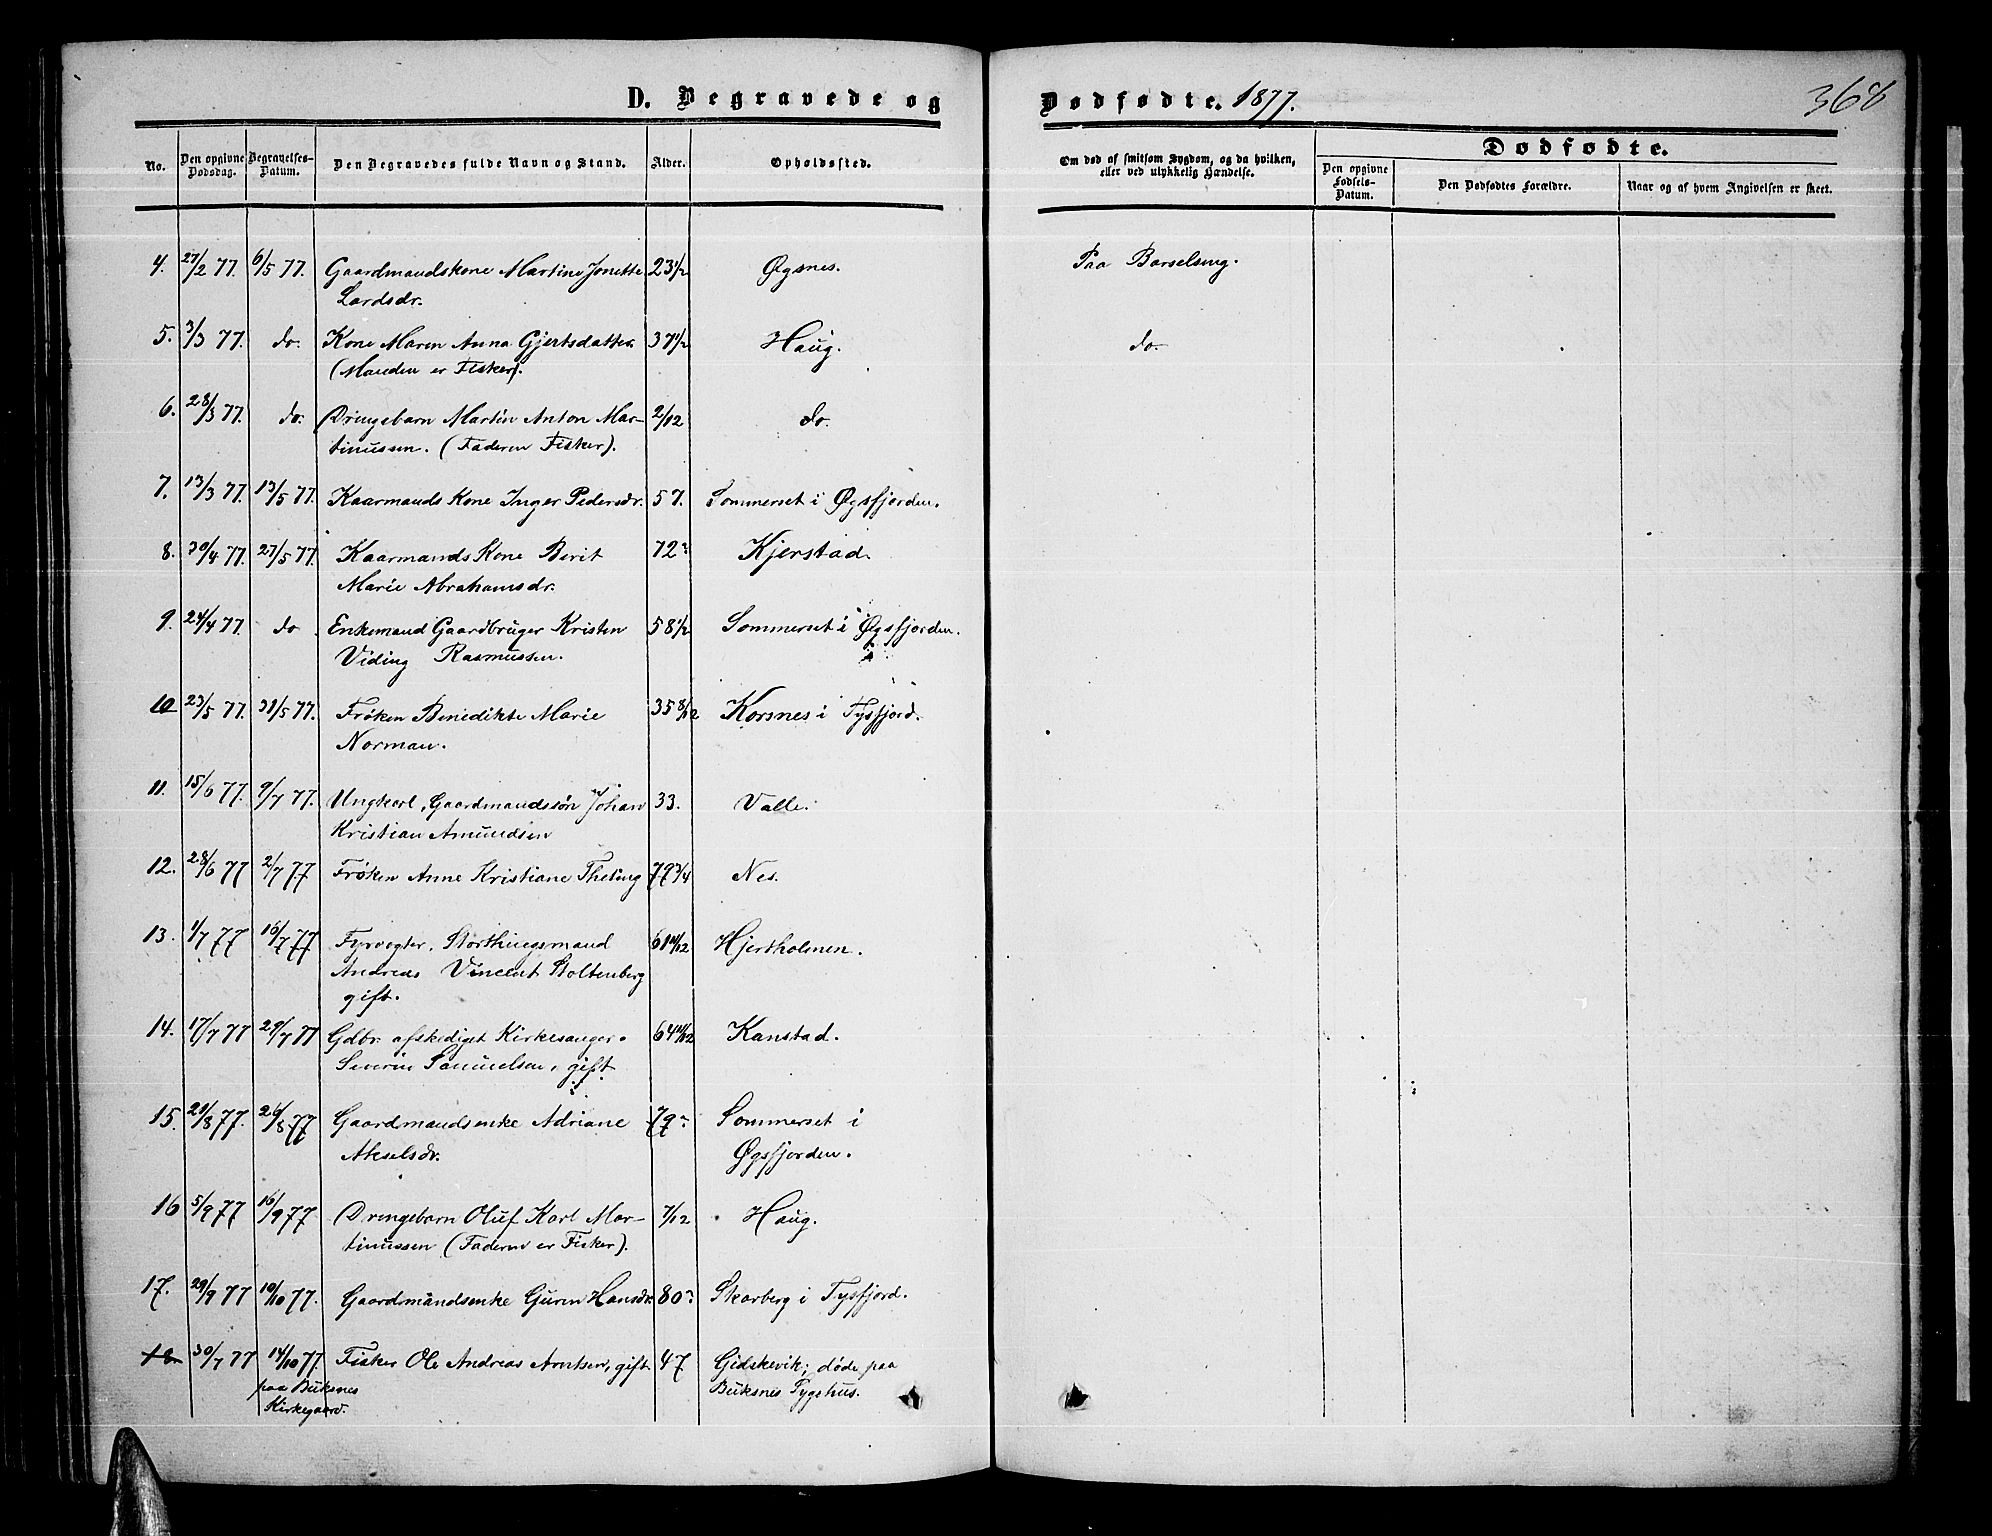 D. Begravede og Dødfødte. 1877. 368
No. Den opgivne Dødsdag. Begravelses-Datum. Den Begravedes fulde Navn og Stand. Alder. Opholdssted. Om død af smitsom Sygdom, og da hvilken, eller ved ulykkelig Hændelse. Dødfødte.
Den opgivne Fødsels-Datum. Den Dødfødtes Forældre. Naar og af hvem Angivelsen er skeet.
4. 27/2 77. 6/5 77. Gaardmandskone Martine Jonette 23 1/2 Øgsnes. Paa Barselseng.
Lardsdr.
5. 3/3 77. do. Kone Maren Anna Gjertsdatter 37 1/2 Haug. do.
(Manden er Fisker).
6. 28/3 77. do. Drengebarn Martin Anton Mar- 2/12 do.
tinussen. (Faderen Fisker).
7. 13/3 77. 13/5 77. Kaarmands Kone Inger Pedersdr. 57. Sommerset i Øgsfjorden.
8. 30/4 77. 27/5 77. Kaarmands Kone Berit 72 Kjerstad.
Marie Abrahamsdr.
9. 24/4 77. do. Enkemand Gaardbruger Kristen 58 1/2 Sommerset i Øgsfjorden.
Viding Rasmussen.
10 23/5 77. 31/5 77. Frøken Benedikte Marie 35 8/12 Korsnes i Tysfjord.
Norman.
11. 15/6 77. 9/7 77. Ungkarl, Gaardmandssøn Johan 33. Valle.
Kristian Amundsen
12. 28/6 77 2/7 77 Frøken Anne Kristiane Theting 79 3/4 Nes.
13. 1/7 77 16/7 77 Fyrvogter, Storthingsmand 61 11/12 Hjertholmen.
Andreas Vincent Stoltenberg
gift.
14. 17/7 77 29/7 77 Gdbr. afskediget Kirkesanger. 64 11/12 Kanstad.
Severin Samuelsen, gift
15. 21/8 77. 26/8 77 Gaardmandsenke Adriane 79 Sommerset i
Akselsdr. Øgsfjorden.
16 5/9 77 16/9 77 Drengebarn Oluf Karl Mar- 7/12 Haug.
tinussen (Faderen er Fisker).
17. 29/9 77 10/10 77. Gaardmandsenke Guren Hansdr. 80 Skarberg i Tysfjord.
18 30/7 77 14/10 77. Fisker Ole Andreas Arntsen, gift 47 Gidskevik; døde paa
paa Buksnes Buksnes Sygehus.
Kirkegaard.